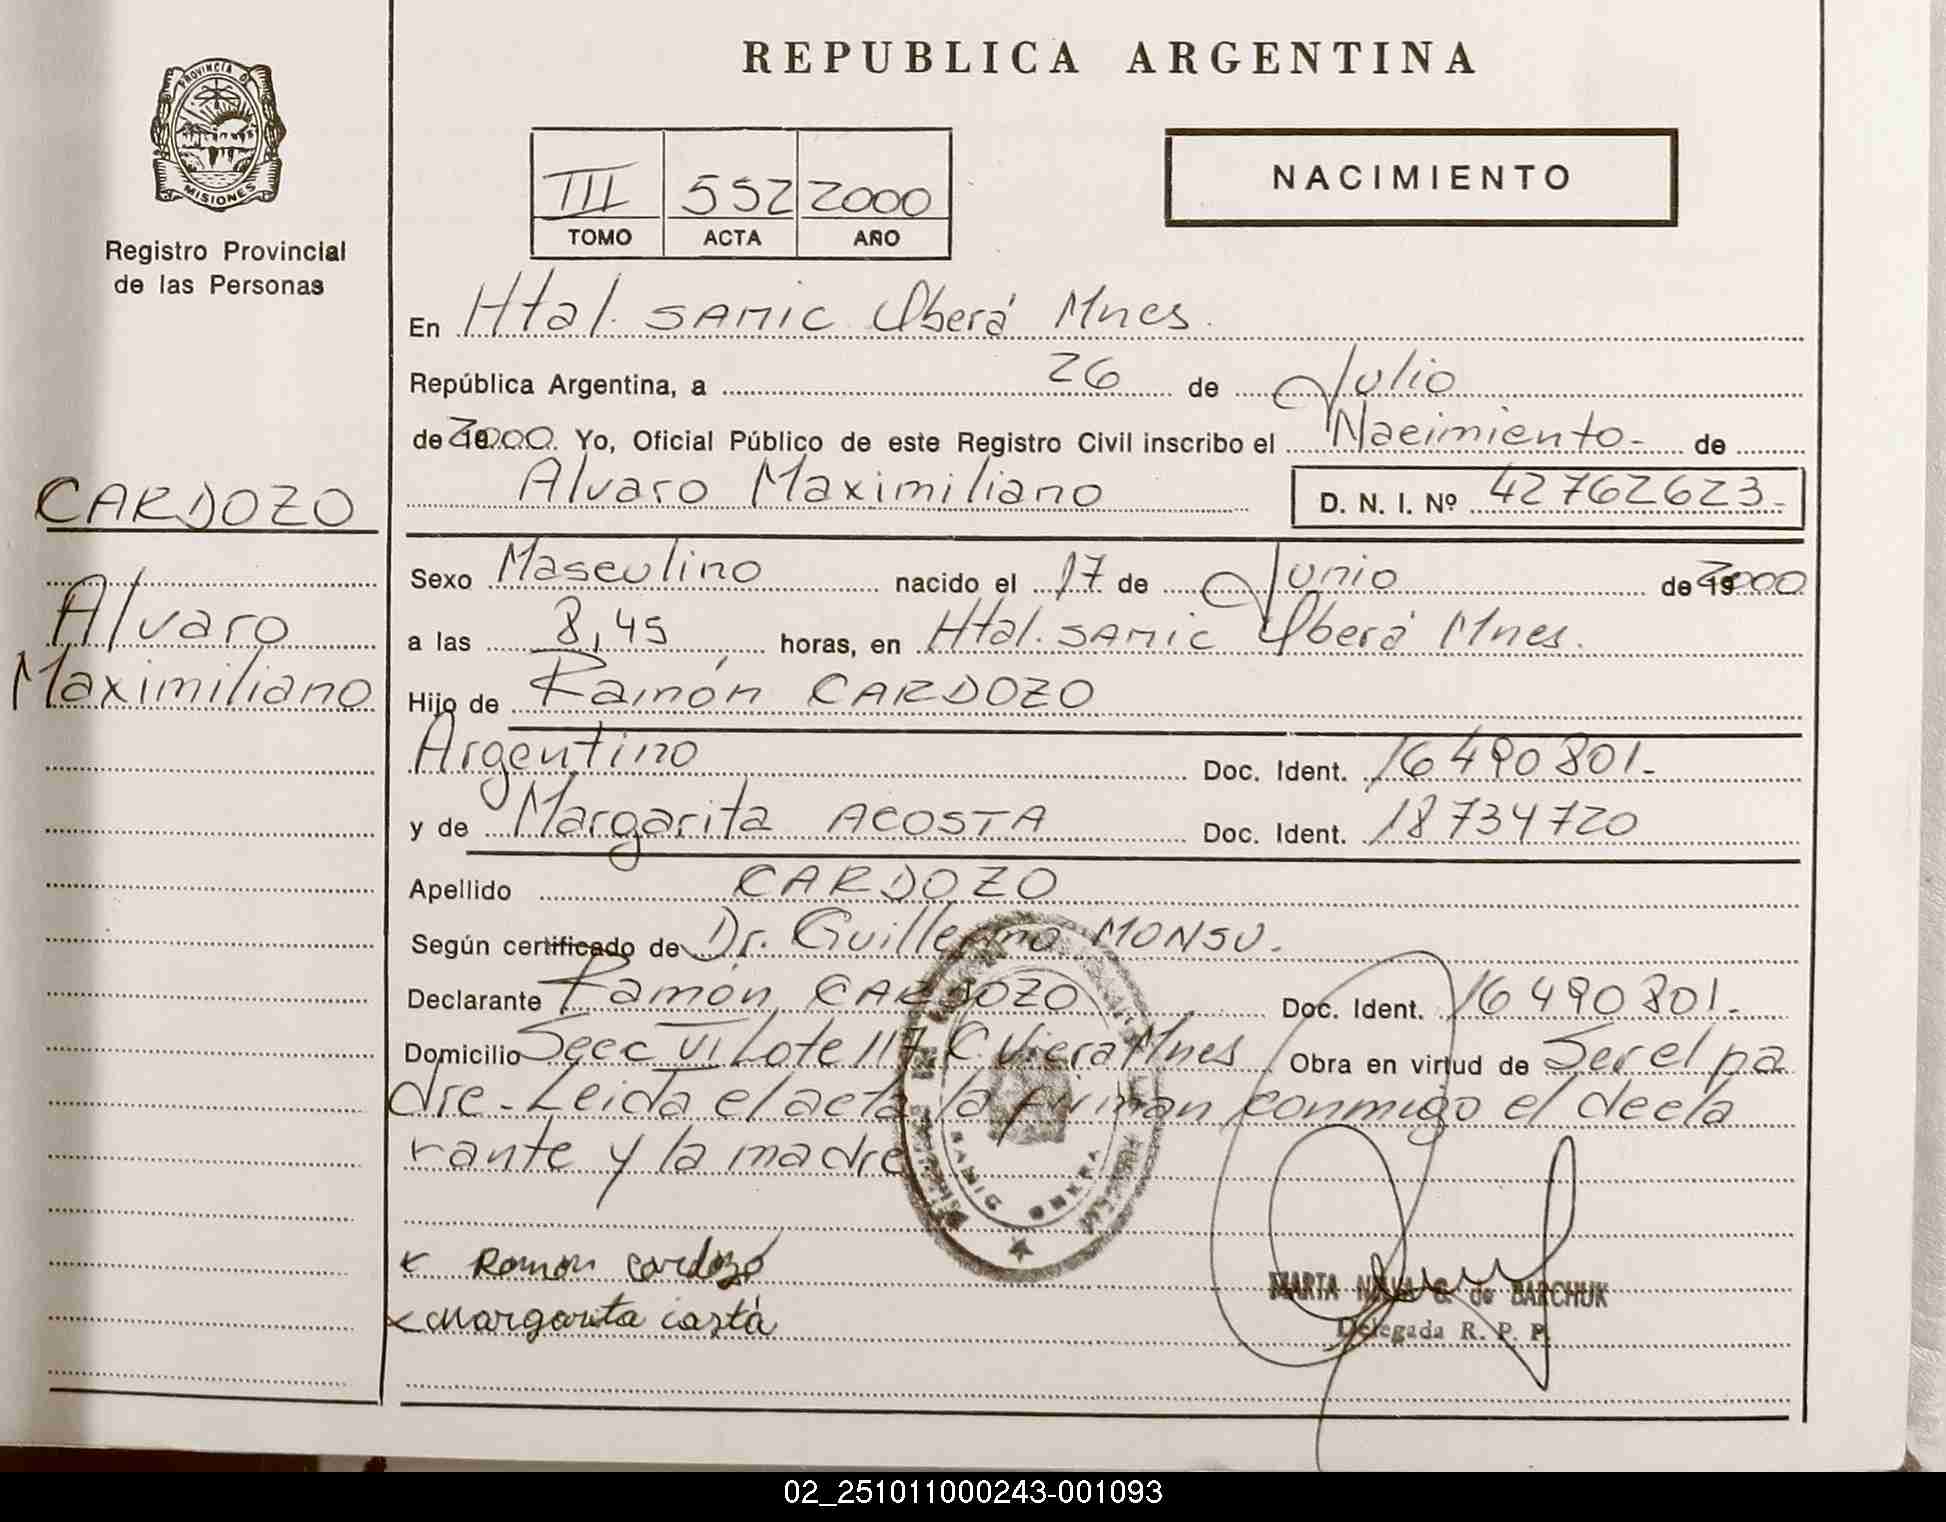 REPUBLICA ARGENTINA
PROVINCIA D
MISIONES
Registro Provincial
de las Personas
III 552 2000
TOMO ACTA AÑO
NACIMIENTO
En Htal. SAMIC Oberá Mnes.
República Argentina, a 26 de Julio
de 2000. Yo, Oficial Público de este Registro Civil inscribo el Nacimiento- de
Alvaro Maximiliano D. N. I. Nº 42762623-
CARDOZO
Alvaro
Maximiliano
Sexo Masculino nacido el 17 de Junio de 2000
a las 8,45 horas, en Htal. SAMIC Oberá Mnes.
Hijo de Ramón CARDOZO
Argentino Doc. Ident. 16490801-
y de Margarita ACOSTA Doc. Ident. 18734720
Apellido CARDOZO
Según certificado de Dr. Guillermo MONSU.
Declarante Ramón CARDOZO Doc. Ident. 16490801-
Domicilio Secc VI Lote 117 C. Viera Mnes Obra en virtud de Ser el pa
dre- Leida el acta, la firman conmigo el decla
rante y la madre
Ramon Cardozo
Margarita
MARTA de BARCHUK
Delegada R. P. P.
02_251011000243-001093